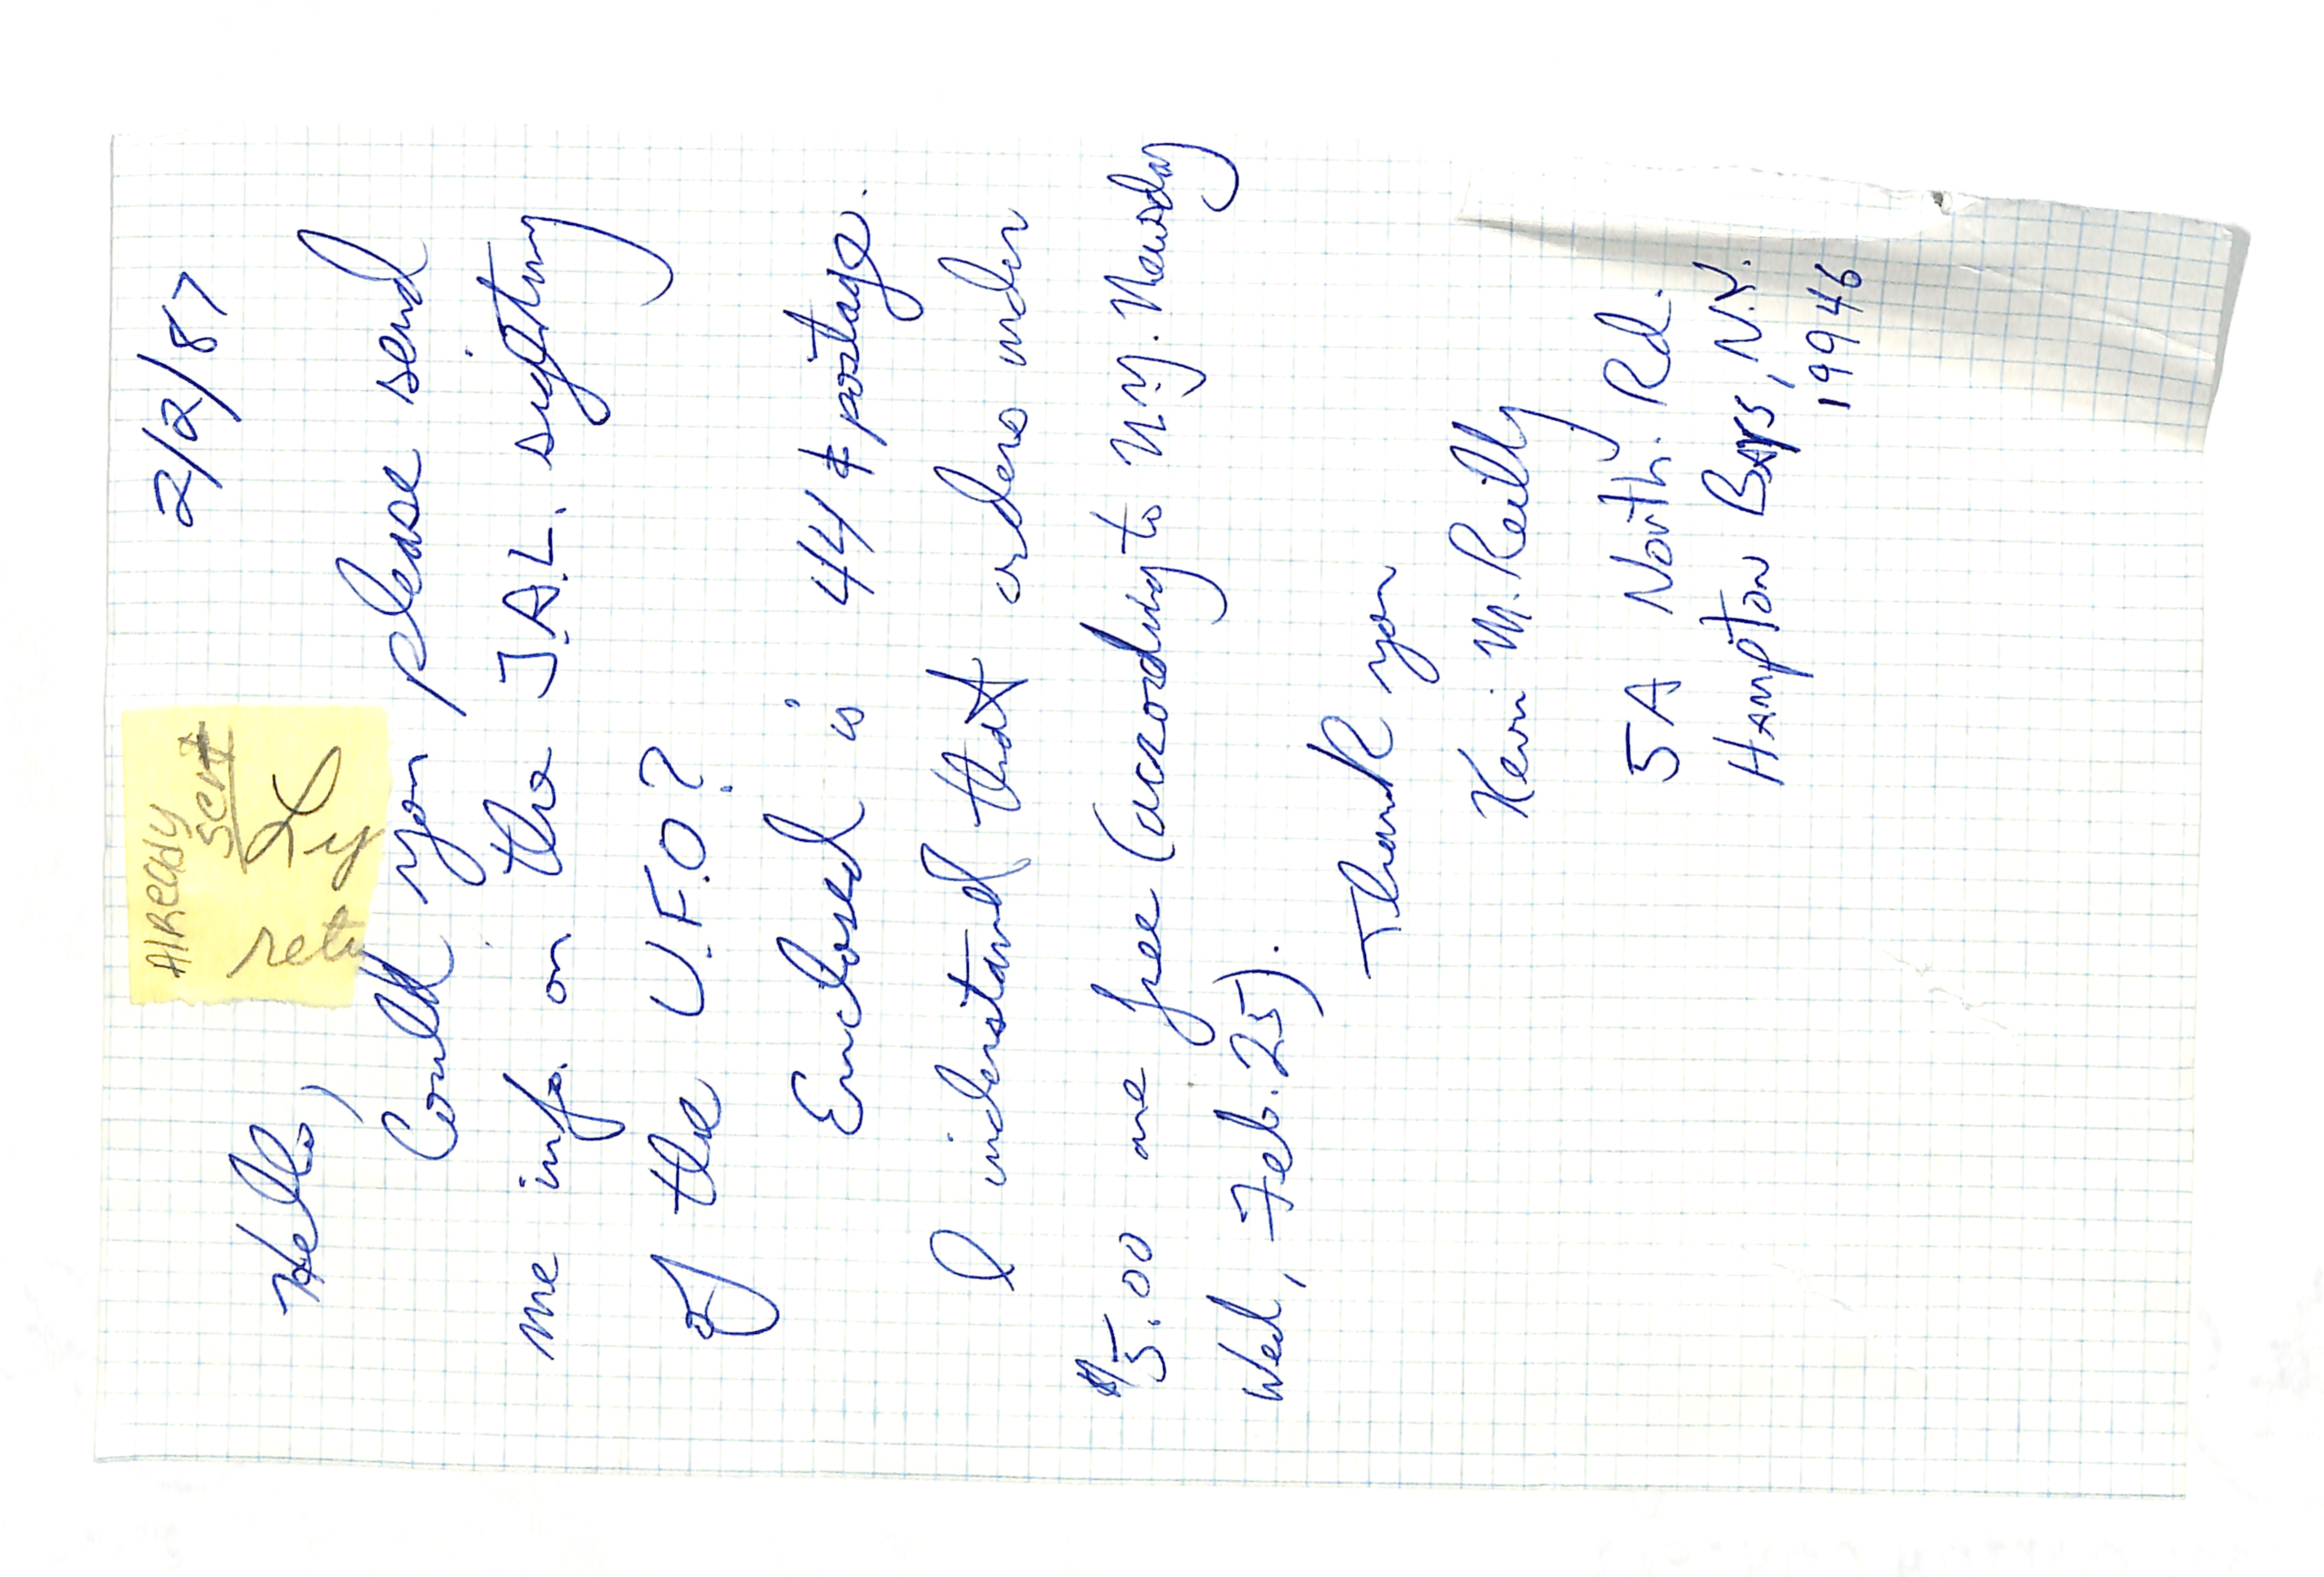 2/2/87
Already
sent
retu
Hello,
Could you please send
me info. on the J.A.L. sighting
of the U.F.O?
Enclosed is 44¢ postage.
I understand that orders under
$5.00 are free (according to N.Y. Newsday
Wed, Feb. 25).
Thank you
Kevin M. Reilly
5A North. Rd.
Hampton Bays, N.Y.
19946